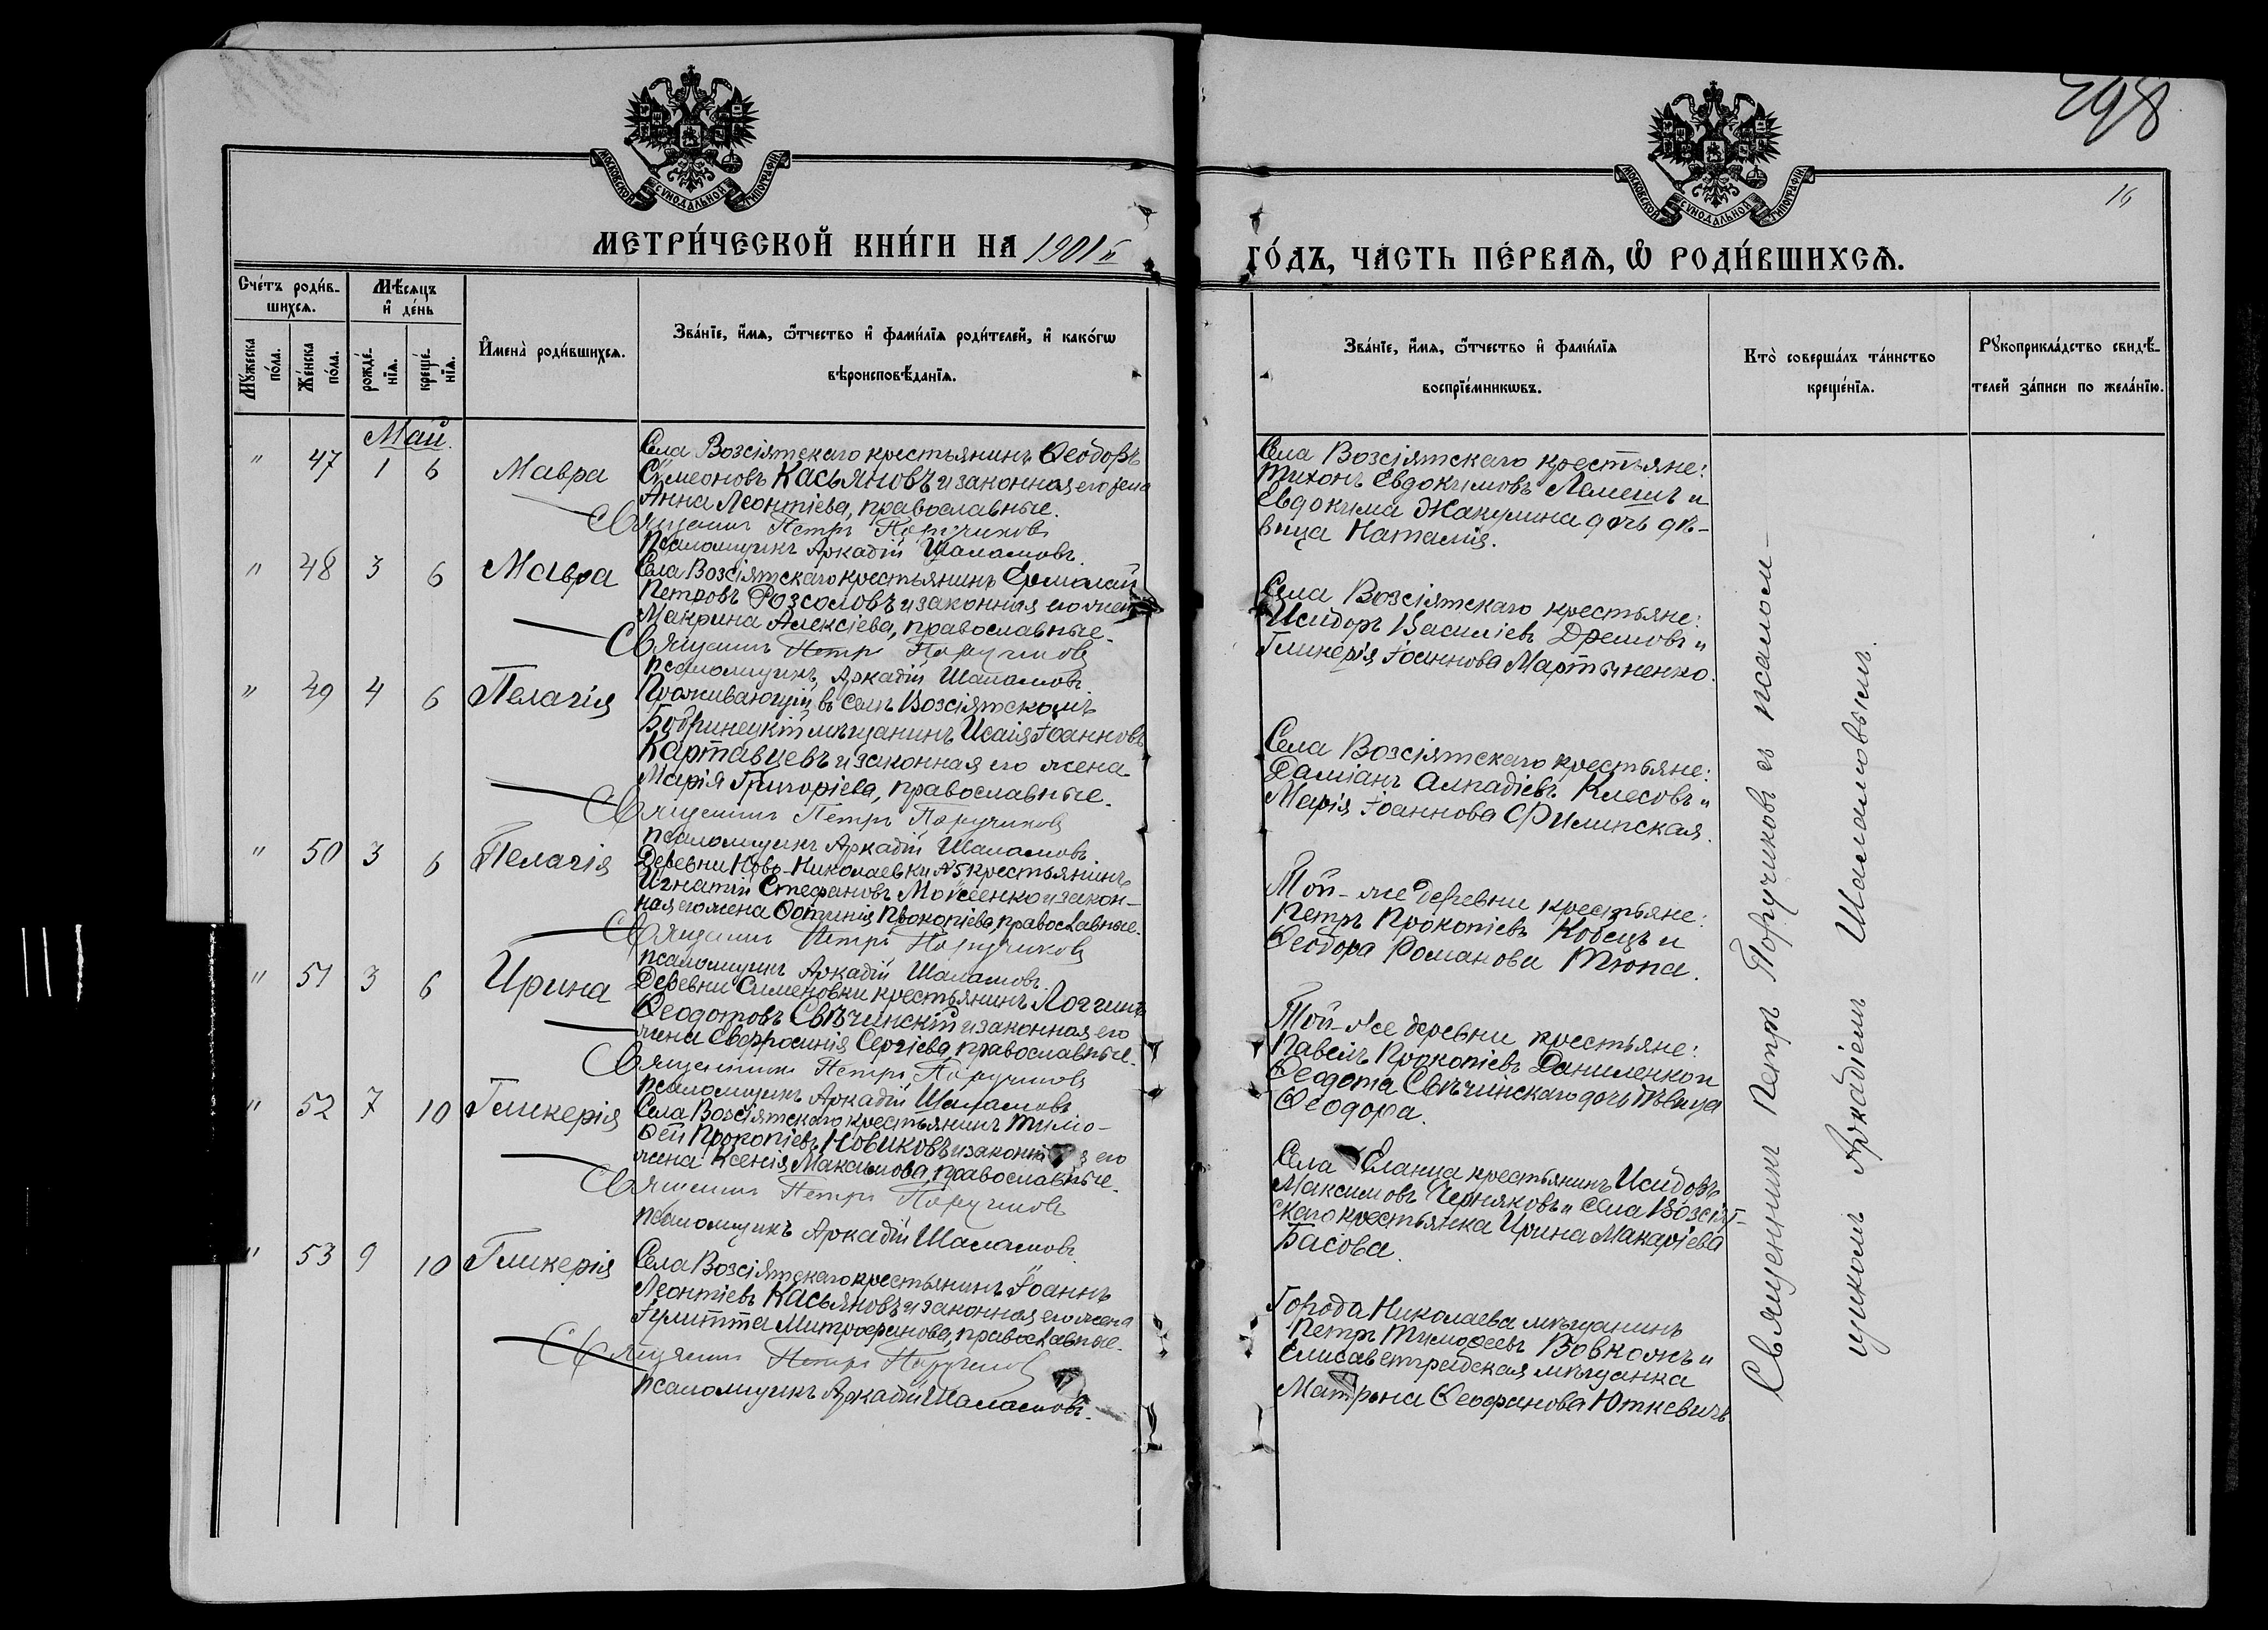 498
16
МОСКОВСКОЙ СУНОДАЛЬНОЙ ТИПОГРАФІИ
МОСКОВСКОЙ СУНОДАЛЬНОЙ ТИПОГРАФІИ
МЕТРИ́ЧЕСКОЙ КНИ́ГИ НА 1901й
ГО́ДЪ, ЧА́СТЬ ПЕ́РВАѦ, Ѡ РОДИ́ВШИХСѦ.
Сче́тъ роди́в-
шихсѧ.
Мꙋ́жеска
по́ла.
Же́нска
по́ла.
Мѣ́сѧцъ
и҆ де́нь
рожде́-
нїѧ.
креще́-
нїѧ.
И҆мена̀ роди́вшихсѧ.
Зва́нїе, и҆́мѧ, ѻ҆́тчество и҆ фами́лїѧ роди́телей, и҆ како́гѡ
вѣроисповѣ́данїѧ.
Зва́нїе, и҆́мѧ, ѻ҆́тчество и҆ фами́лїѧ
воспрїе́мникѡвъ.
Кто̀ соверша́лъ та́инство
креще́нїѧ.
Рꙋкоприкла́дство свидѣ́-
телей за́писи по жела́нїю.
Май.
" 47 1 6 Мавра
Села Возсіятскаго крестьянинъ Ѳеодоръ
Симеоновъ Касьяновъ и законная его жена
Анна Леонтіева, православные.
Священникъ Петръ Поручиковъ
Псаломщикъ Аркадій Шаламовъ.
Села Возсіятскаго крестьяне:
Тихонъ Евдокимовъ Лемешъ и
Евдокима Жакулина дочь дѣ-
вица Наталія.
" 48 3 6 Мавра
Села Возсіятскаго крестьянинъ Ермолай
Петровъ Розсоловъ и законная его жена
Макрина Алексіева, православные.
Священникъ Петръ Поручиковъ
Псаломщикъ Аркадій Шаламовъ.
Села Возсіятскаго крестьяне:
Исидоръ Василіевъ Дремовъ и
Гликерія Іоаннова Мартыненко.
" 49 4 6 Пелагія
Проживающій въ селѣ Возсіятскомъ
Бобринецкій мѣщанинъ Исаія Іоанновъ
Картавцевъ и законная его жена
Марія Григоріева, православные.
Священникъ Петръ Поручиковъ
Псаломщикъ Аркадій Шаламовъ.
Села Возсіятскаго крестьяне:
Даміанъ Клесовъ и
Марія Іоаннова Филипская.
" 50 3 6 Пелагія
Деревни Ново-Николаевки №5 крестьянинъ
Игнатій Стефановъ Мойсеенко и закон-
ная его жена Фотинія Прокопіева, православные.
Священникъ Петръ Поручиковъ
Псаломщикъ Аркадій Шаламовъ.
Той-же деревни крестьяне:
Петръ Прокопіевъ Кобецъ и
Ѳеодора Романова Тюпа.
" 51 3 6 Ирина
Деревни Сименовки крестьянинъ Логгинъ
Ѳеодотовъ Свѣчинскій и законная его
жена Евфросинія Сергіева, православные.
Священникъ Петръ Поручиковъ
Псаломщикъ Аркадій Шаламовъ
Той-же деревни крестьяне:
Павелъ Прокопіевъ Даниленко и
Ѳеодота Свѣчинскаго дочь дѣвица
Ѳеодора.
" 52 7 10 Гликерія
Села Возсіятскаго крестьянинъ Тимо-
ѳей Прокопіевъ Новиковъ и законная его
жена Ксенія Максимова, православные.
Священникъ Петръ Поручиковъ
Псаломщикъ Аркадій Шаламовъ.
Села Еланца крестьянинъ Исидоръ
Максимовъ Черняковъ и села Возсіят-
скаго крестьянка Ирина Макаріева
Басова.
" 53 9 10 Гликерія
Села Возсіятскаго крестьянинъ Іоаннъ
Леонтіевъ Касьяновъ и законная его жена
Іулитта Митрофанова, православные.
Священникъ Петръ Поручиковъ
Псаломщикъ Аркадій Шаламовъ.
Города Николаева мѣщанинъ
Петръ Тимоѳеевъ Вовкожъ и
Елисаветградская мѣщанка
Матрона Ѳеофанова Юткевичъ
Священникъ Петръ Поручиковъ съ псалом-
щикомъ Аркадіемъ Шаламовымъ.